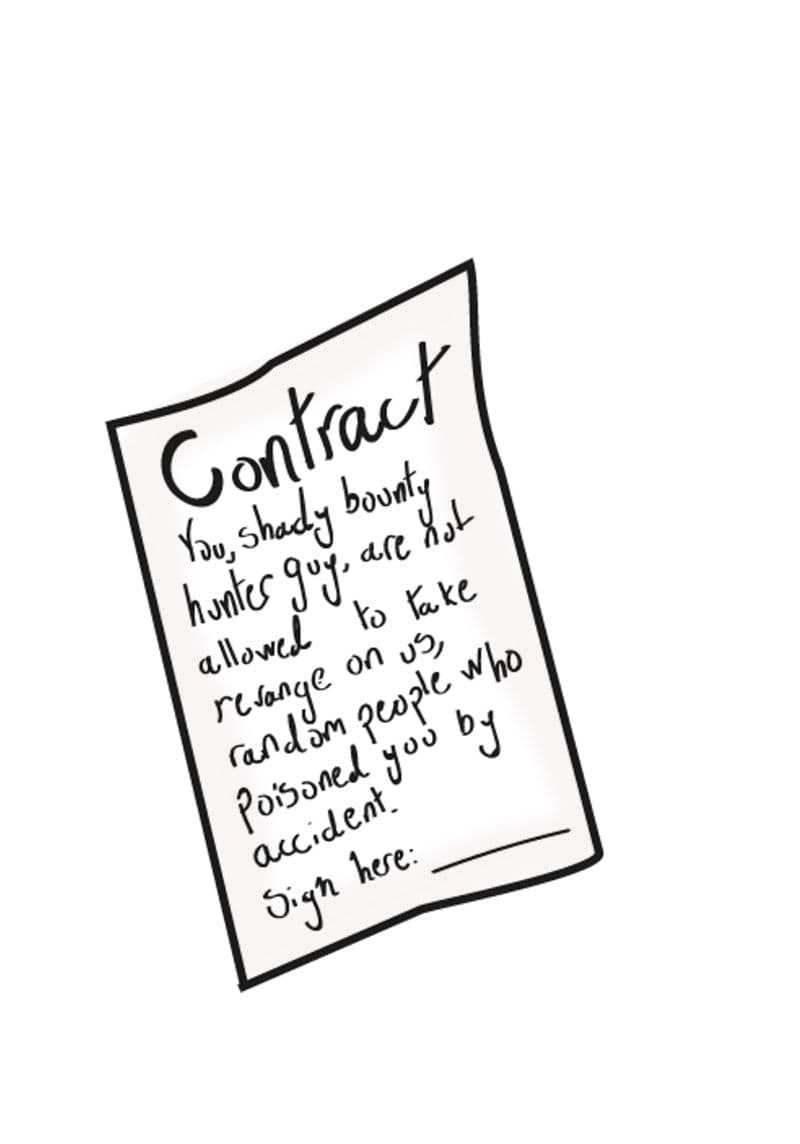 Contract
You, shady bounty
hunter guy, are not
allowed to take
revange on us,
random people who
Poisoned you by
accident.
Sign here: